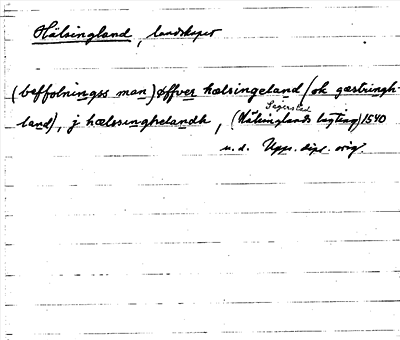 Hälsingland, landskapet
(beffolningss man) öffver hælsingeland (ok gæstringh-
land), j hælssinghelandh, (Hälsinglands lagting) 1540
Segersted
u.d. Upps. dipl. orig.